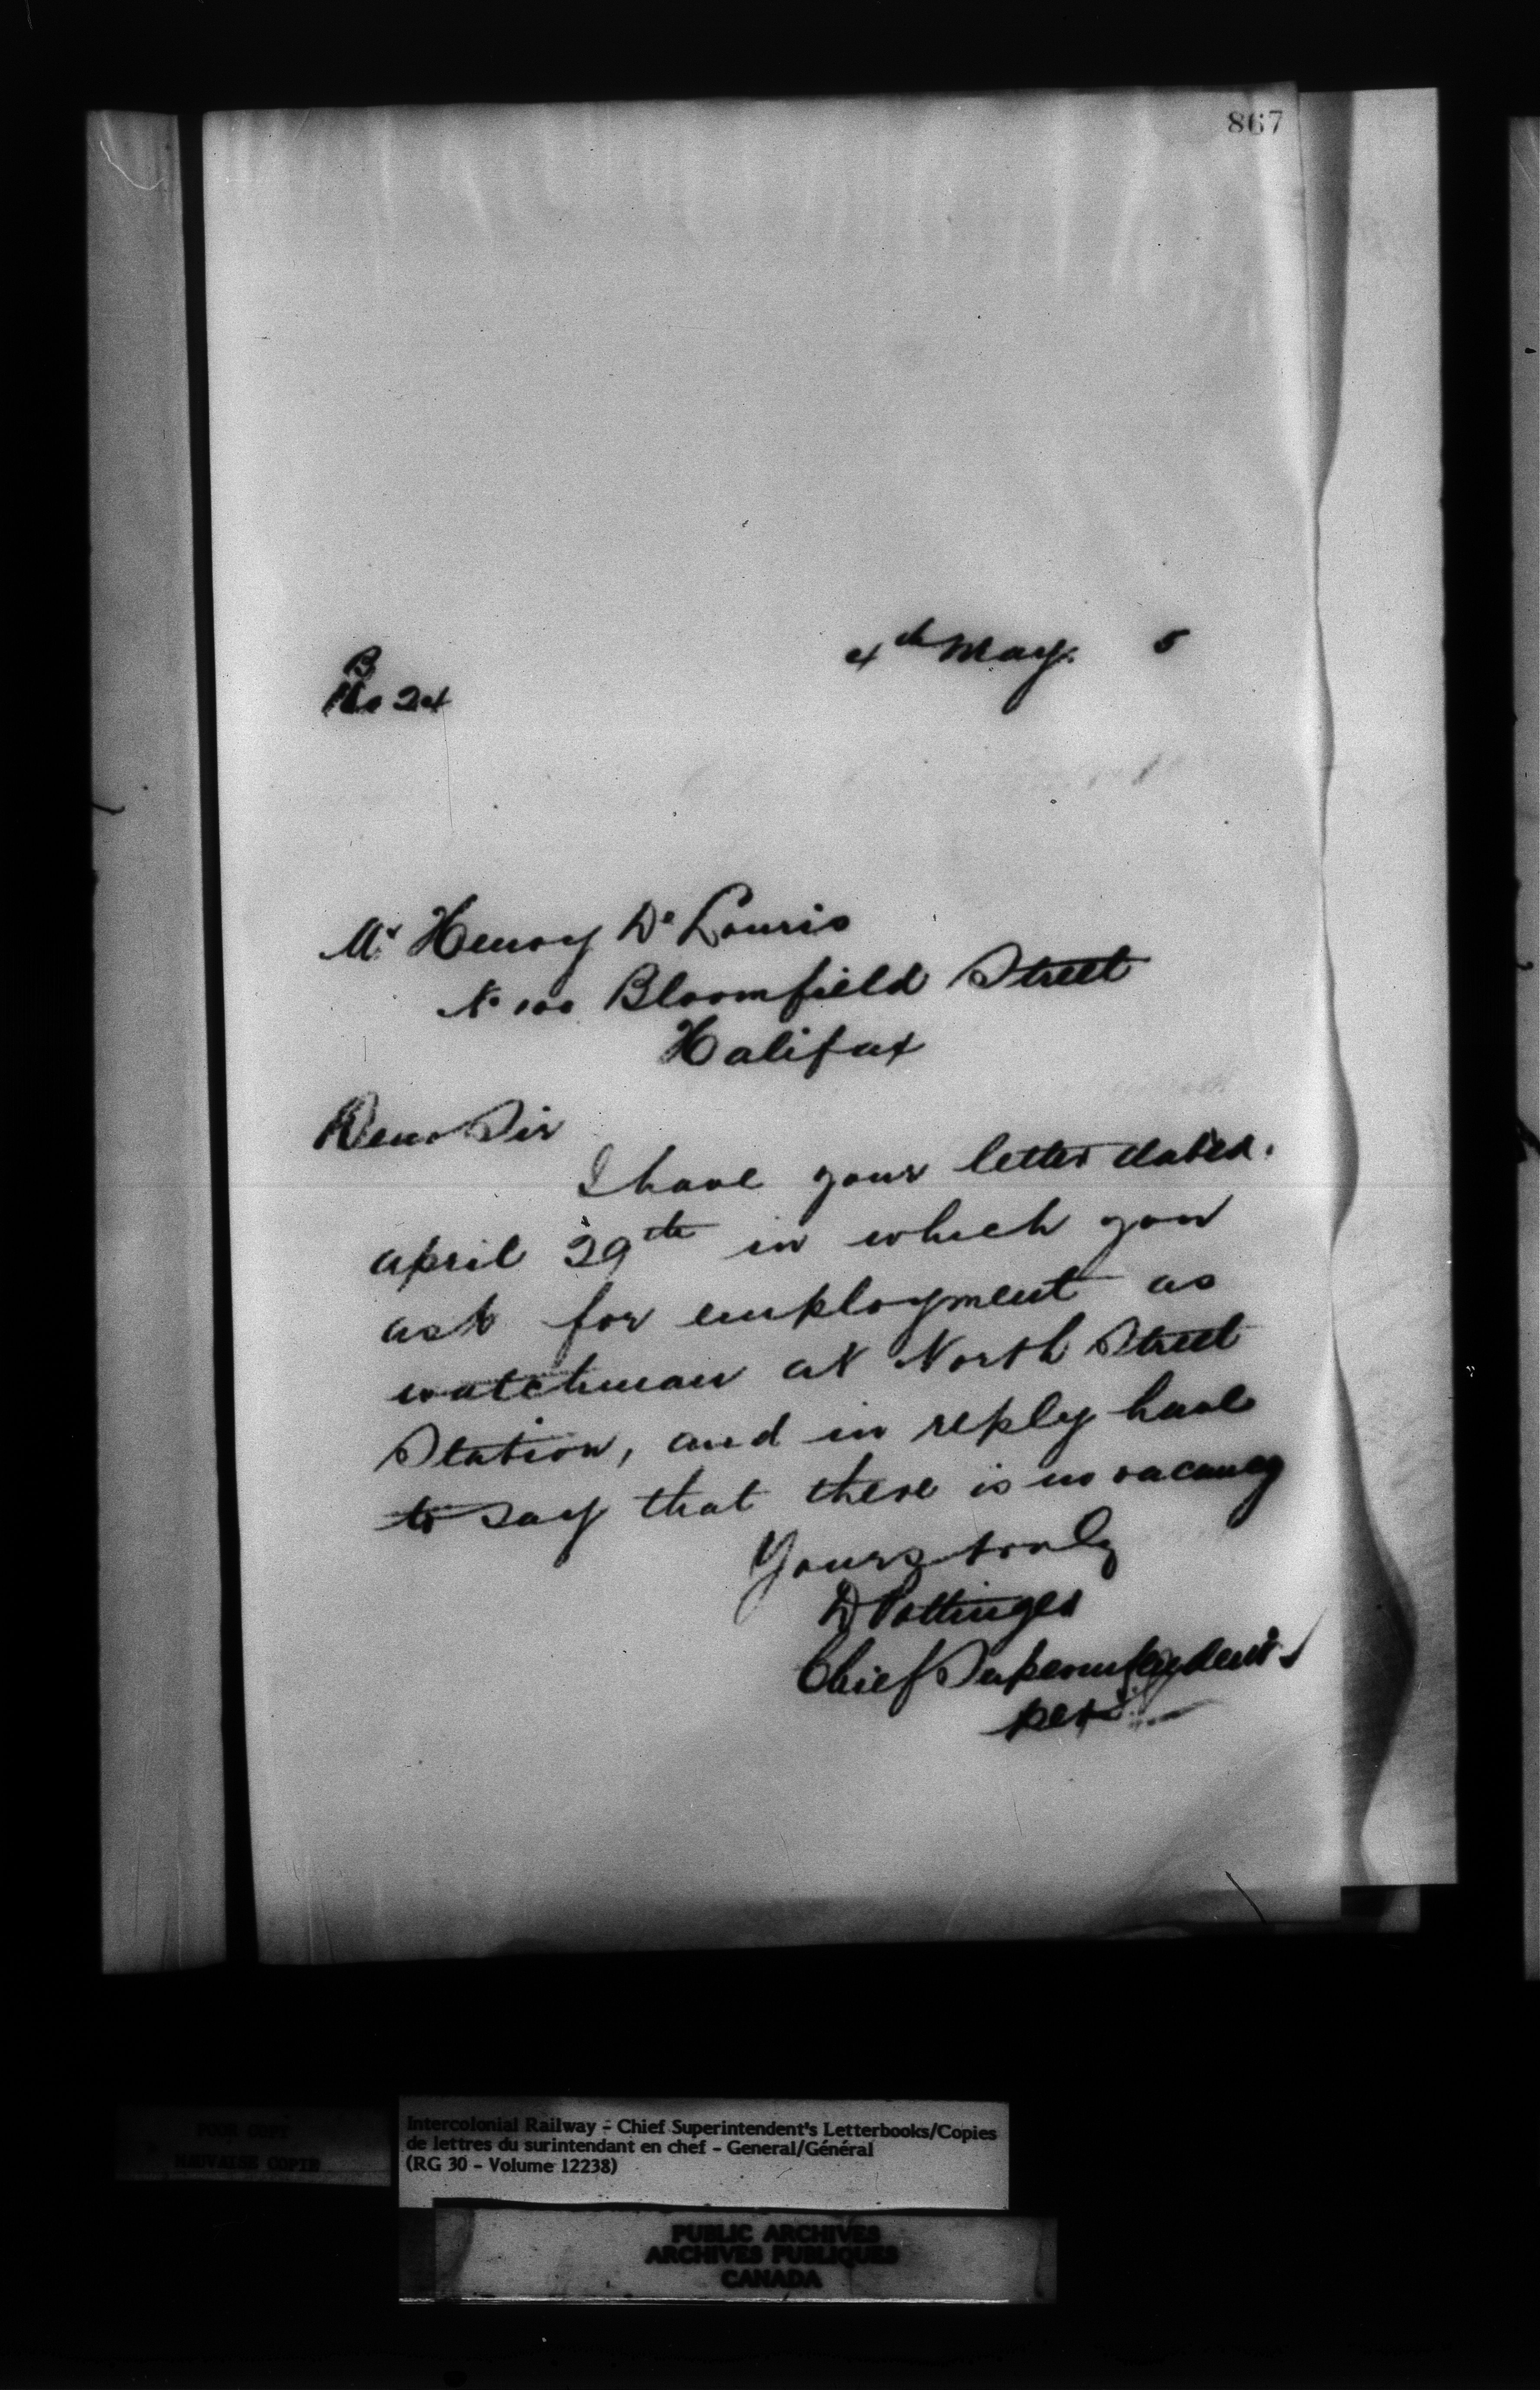 867
4th May. 5
B
No 24
Mr Henry De Louris
No 100 Bloomfield Street
Halifax
Dear Sir
I have your letter dated.
april 29th in which you
ask for employment as
watchman at North Street
Station, and in reply have
to say that there is no vacancy
Yours truly
D Pottinger
Chief Superintendent
per
POOR COPY
MAUVAISE COPIE
Intercolonial Railway - Chief Superintendent's Letterbooks/Copies
de lettres du surintendant en chef - General/Général
(RG 30 - Volume 12238)
PUBLIC ARCHIVES
ARCHIVES PUBLIQUES
CANADA